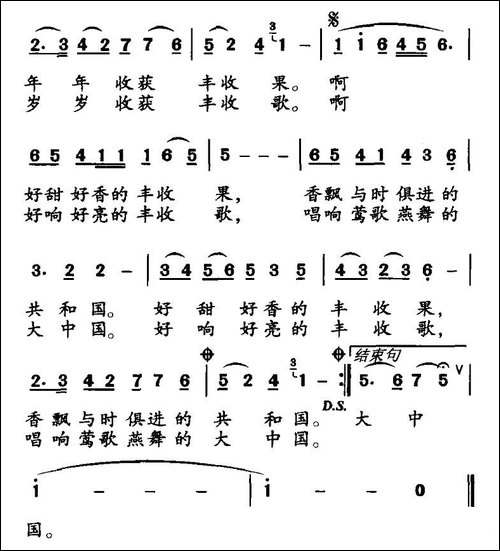 2. 3 4 2 7 7 6 | 5 2 4 3 1 – | 1 i 6 4 5 6.
年 年 收获 丰收 果。啊
岁 岁 收获 丰收 歌。啊
6 5 5 4 1 1 1 6 5 | 5 – – – | 6 5 5 4 1 4 3 6
好甜 好香的 丰收 果， 香飘 与时 俱进的
好响 好亮的 丰收 歌， 唱响 莺歌 燕舞的
3. 2 2 – | 3 4 5 6 5 3 5 | 4 3 2 3 6 – |
共 和 国。 好 甜 好 香 的 丰 收 果，
大 中 国。 好 响 好 亮 的 丰 收 歌，
结束句
2. 3 4 2 7 7 6 | 5 2 4 3 1 – :‖ 5. 6 7 5 V
D.S.
香飘 与时 俱进 的 共 和 国。 大 中
唱响 莺歌 燕舞 的 大 中 国。
i – – – | i – – 0 ‖
国。